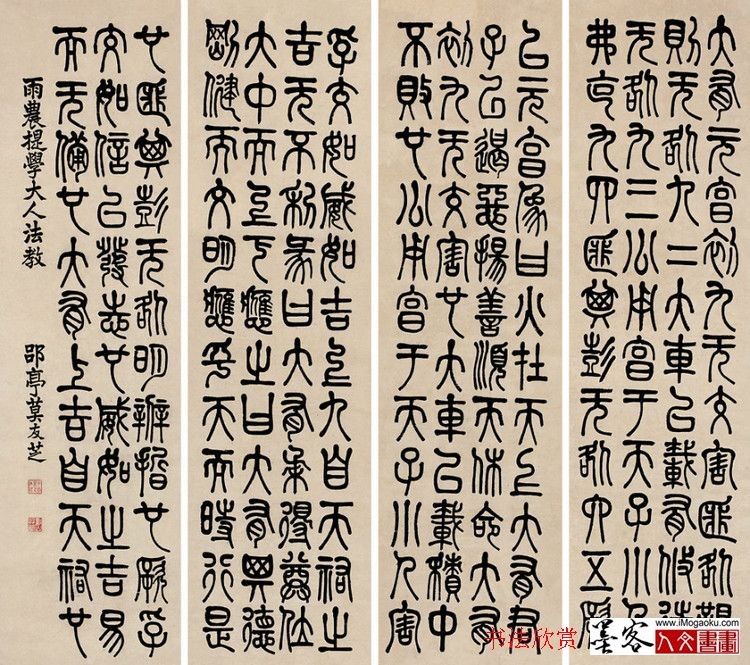 大有元亨初九无交害匪咎艱
則无咎九二大車以載有攸往
无咎九三公用亨于天子小人
弗克九四匪其彭无咎六五厥
孚交如威如吉上九自天祐之
吉无不利彖曰大有柔得尊位
大中而上下應之曰大有其德
剛健而文明應乎天而時行是
以元亨象曰火在天上大有君
子以遏惡揚善順天休命大有
初九无交害也大車以載積中
不敗也公用亨于天子小人害
也匪其彭无咎明辨晢也厥孚
交如信以發志也威如之吉易
而无備也大有上吉自天祐也
雨農提學大人法教
郘亭莫友芝
书法欣赏
墨客
www.iMogaoku.com
人文書畫